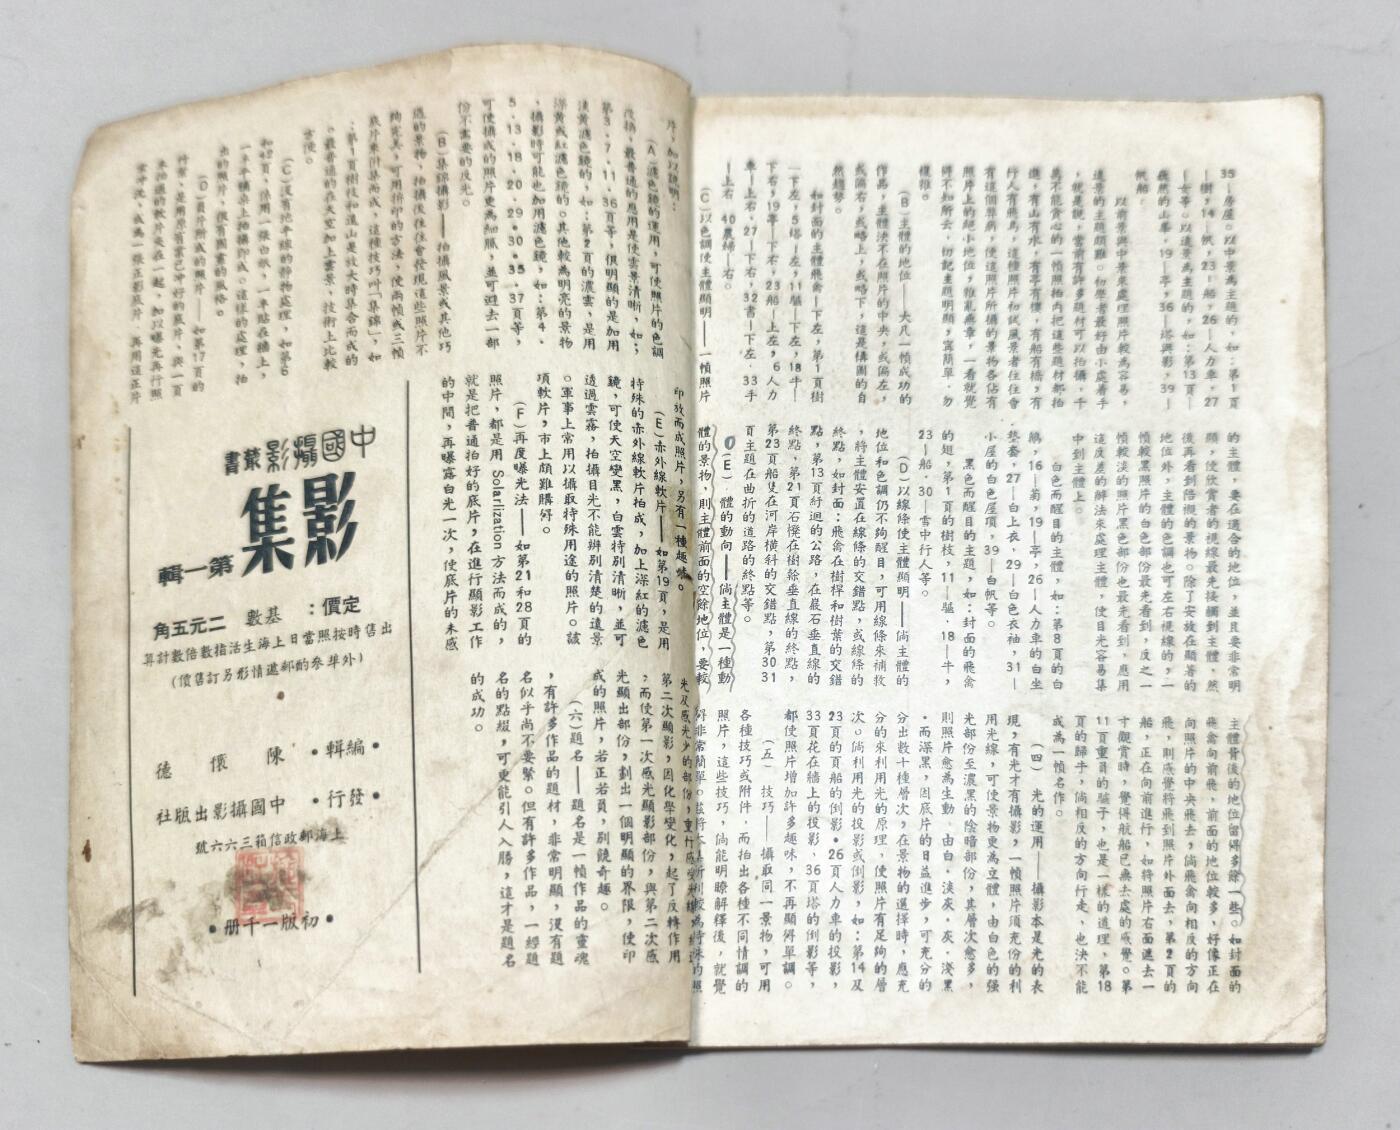 35—房屋。以中景為主題的，如：第1頁
—樹，14—帆，23—船，26—人力車，27
—女等。以遠景為主題的，如：第13頁—
巍然的山峯，19—亭，36—塔與影，39—
帆船。
以前景與中景來處理照片較為容易，
遠景的主題頗難。初學者最好由小處着手
，就是說，當前有許多題材可以拍攝，千
萬不能貪心的一幀照拍內把這些題材都拍
進，有山有水，有亭有樓，有船有橋，有
行人有飛鳥，這種照片初試風景者往往會
有這個弊病，使這照片所攝的景物各佔有
照片上的絕小地位，雜亂無章，一看就覺
得不知所云，切記主題明顯，寧簡單，勿
複雜。
(B) 主體的地位——大凡一幀成功的
作品，主體決不在照片的中央，或偏左，
或偏右，或略上，或略下，這是構圖的自
然趨勢。
如封面的主體飛禽—下左，第1頁樹
—下左，5塔—左，11驢—下左，18牛—
下右，19亭—下右，23船—上左，6人力
車—上右，27—上右，32書—下左，33手
—上右，40農婦—右。
(C) 以色調使主體顯明——一幀照片
的主體，要在適合的地位，並且要非常明
顯，使欣賞者的視線最先接觸到主體，然
後再看到陪襯的景物。除了安放在顯著的
地位外，主體的色調也可左右視線的，一
幀較黑照片的白色部份最先看到，反之一
幀較淡的照片黑色部份也最先看到，應用
這反差的辦法來處理主體，使目光容易集
中到主體上。
白色而醒目的主體，如：第8頁的白
鵝，16—菊，19—亭，26—人力車的白坐
墊套，27—白上衣，29—白色衣袖，31—
小屋的白色屋頂，39—白帆等。
黑色而醒目的主題，如：封面的飛禽
的翅，第1頁的樹枝，11—驢，18—牛，
23—船，30—雪中行人等。
(D) 以線條使主體顯明——倘主體的
地位和色調仍不夠醒目，可用線條來補救
，將主體安置在線條的交錯點，或線條的
終點，如封面：飛禽在樹桿和樹葉的交錯
點，第13頁紆迴的公路，在巖石垂直線的
終點，第21頁石欖在樹榦垂直線的終點，
第23頁船隻在河岸橫斜的交錯點，第30 31
頁主題在曲折的道路的終點等。
(E) 體的動向——倘主體是一種動
體的景物，則主體前面的空餘地位，要較
主體背後的地位留得多餘一些。如封面的
飛禽向前飛，前面的地位較多，好像正在
向照片的中央飛去；倘飛禽向相反的方向
飛，則感覺將飛到照片外面去，第2頁的
船，正在向前進行，如將照片右面遮去一
寸觀賞時，覺得航船已無去處的感覺。第
11頁重負的驢子，也是一樣的道理，第18
頁的歸牛，倘相反的方向行走，也決不能
成為一幀名作。
(四) 光的運用——攝影本是光的表
現，有光才有攝影，一幀照片須充份的利
用光線，可使景物更為立體，由白色的強
光部份至濃黑的陰暗部份，其層次愈多，
則照片愈為生動，由白，淡灰，灰，淺黑
，而深黑，因底片的日益進步，可充分的
分出數十種層次，在景物的選擇時，應充
分的來利用光的原理，使照片有足夠的層
次。倘利用光的投影或倒影，如：第14及
23頁的船的倒影，26頁人力車的投影，
33頁花在牆上的投影，36頁塔的倒影等，
都使照片增加許多趣味，不再顯得單調。
(五) 技巧——攝取同一景物，可用
各種技巧或附件，而拍出各種不同情調的
照片，這些技巧，倘能明瞭解釋後，就覺
得非常簡單。茲將本集所刊較為特殊的照
片，加以說明：
(A) 濾色鏡的運用，可使照片的色調
改換，最普通的應用是使雲景清晰，如；
第3，7，11，36頁等，很明顯的是加用
淡黃濾色鏡的，如：第2頁的濃雲，是用
深黃或紅濾色鏡的。其他較為明亮的景物
，攝影時可能也加用濾色鏡，如：第4，
5，13，18，20，29，30，35，37頁等，
可使攝成的照片更為細膩，並可避去一部
份不需要的反光。
(B) 集錦攝影——拍攝風景或其他巧
遇的景物，拍攝後往往會發現這些照片不
夠完美，可用拼印的方法，使兩幀或三幀
底片來併集而成，這種技巧叫「集錦」，如
：第1頁樹枝和遠山是放大時集合而成的
。最普通的在天空加上雲景，技術上比較
方便。
(C) 沒有地平線的靜物處理，如第6
和32頁，係用一張白紙，一半貼在牆上，
一半平鋪桌上拍攝即成。這樣的處理，拍
出的照片，很有圖畫的風格。
(D) 負片所成的照片——如第17頁的
竹葉，是用原有業已沖好的照片，與一頁
未拍過的軟片夾在一起，加以曝光再行照
常沖洗，成為一張正影底片，再用這正片
印放而成照片，另有一種趣味。
(E) 赤外線軟片——如第19頁，是用
特殊的赤外線軟片拍成，加上深紅的濾色
鏡，可使天空變黑，白雲特別清晰，並可
透過雲霧，拍攝目光不能辨別清楚的遠景
。軍事上常用以攝取特殊用途的照片。該
項軟片，市上頗難購得。
(F) 再度曝光法——如第21和28頁的
照片，都是用 Solarlization 方法而成的，
就是把普通拍好的底片，在進行顯影工作
的中間，再曝露白光一次，使底片的未感
光及感光少的部份，重行感受光線，經過
第二次顯影，因化學變化，起了反轉作用
，而使第一次感光顯影部份，與第二次感
光顯出部份，劃出一個明顯的界限，使印
成的照片，若正若負，別饒奇趣。
(六) 題名——題名是一幀作品的靈魂
，有許多作品的題材，非常明顯，沒有題
名似乎尚不要緊。但有許多作品，一經題
名的點綴，可更能引人入勝，這才是題名
的成功。
中國攝影叢書
影集
第一輯
定價：基數 二元五角
出售時按照當日上海生活指數倍數計算
(外埠參酌郵遞情形另訂售價)
•編輯• 陳懷德
•發行• 中國攝影出版社
上海郵政信箱三六六號
•初版一千冊•